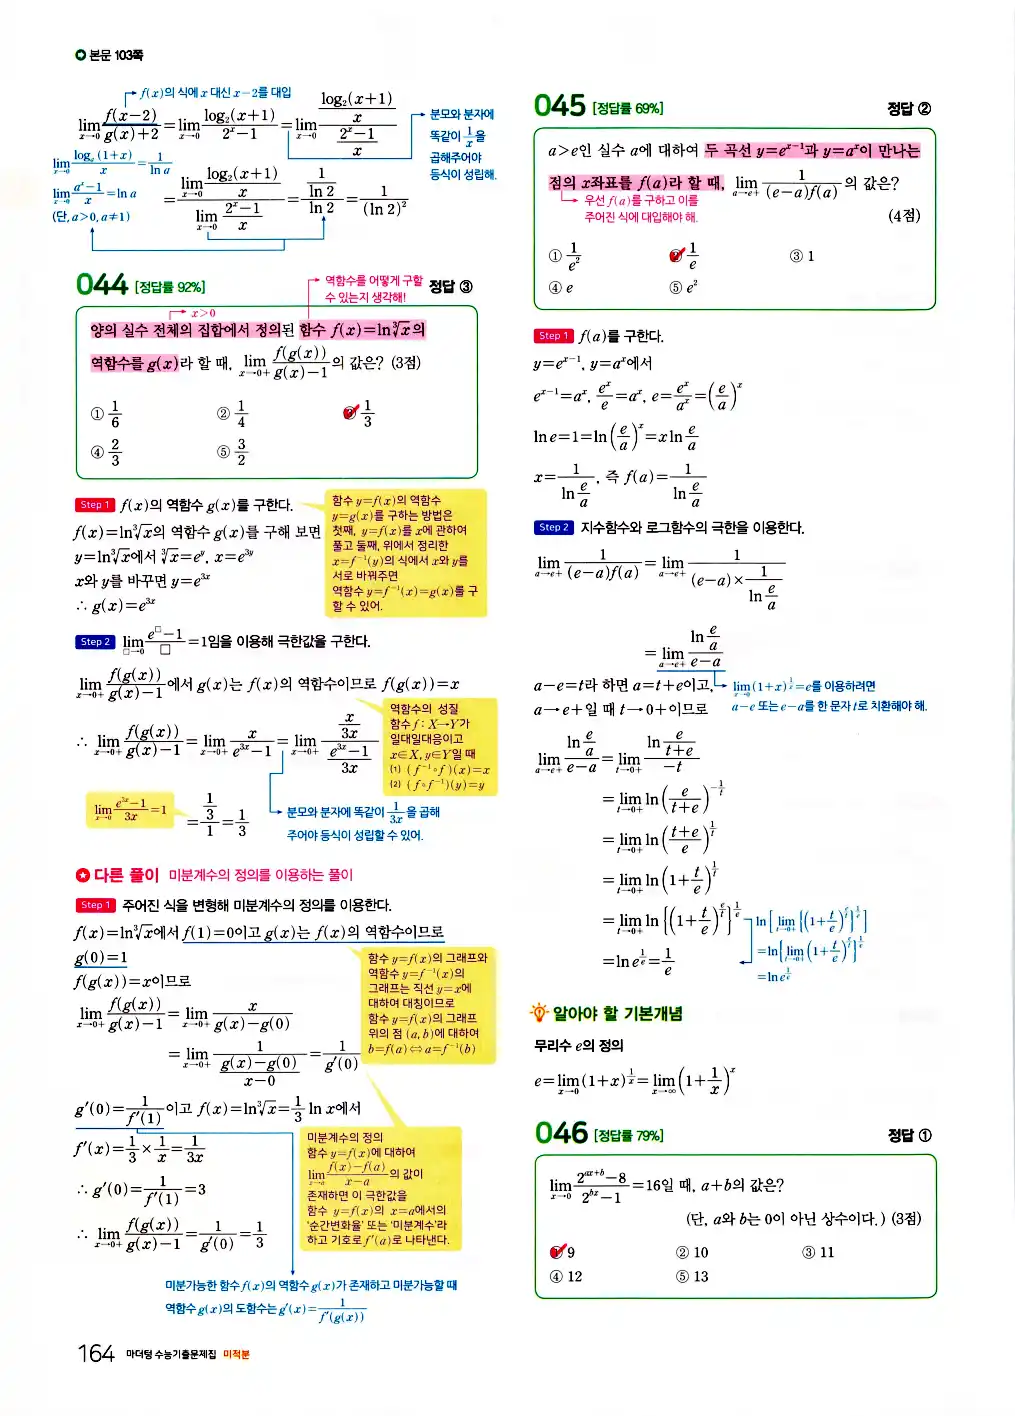 본문 103쪽
f(x)의 식에 x 대신 x-2를 대입
lim_{x→0} f(x-2)/(g(x)+2) = lim_{x→0} log₂(x+1)/(2^x-1) = lim_{x→0} (log₂(x+1)/x)/((2^x-1)/x)
분모와 분자에
똑같이 1/x을
곱해주어야
등식이 성립해.
lim_{x→0} log_a(1+x)/x = 1/ln a
lim_{x→0} (a^x-1)/x = ln a
(단, a>0, a≠1)
= (lim_{x→0} log₂(x+1)/x)/(lim_{x→0} (2^x-1)/x) = (1/ln 2)/ln 2 = 1/(ln 2)²
044 [정답률 92%]
역함수를 어떻게 구할
수 있는지 생각해!
정답 ③
x>0
양의 실수 전체의 집합에서 정의된 함수 f(x)=ln∛x의
역함수를 g(x)라 할 때, lim_{x→0+} f(g(x))/(g(x)-1)의 값은? (3점)
① 1/6 ② 1/4 ③ 1/3
④ 2/3 ⑤ 3/2
Step 1 f(x)의 역함수 g(x)를 구한다.
f(x)=ln∛x의 역함수 g(x)를 구해 보면
y=ln∛x에서 ∛x=e^y, x=e^{3y}
x와 y를 바꾸면 y=e^{3x}
∴ g(x)=e^{3x}
함수 y=f(x)의 역함수
y=g(x)를 구하는 방법은
첫째, y=f(x)를 x에 관하여
풀고 둘째, 위에서 정리한
x=f^{-1}(y)의 식에서 x와 y를
서로 바꿔주면
역함수 y=f^{-1}(x)=g(x)를 구
할 수 있어.
Step 2 lim_{□→0} (e^□-1)/□ = 1임을 이용해 극한값을 구한다.
lim_{x→0+} f(g(x))/(g(x)-1)에서 g(x)는 f(x)의 역함수이므로 f(g(x))=x
∴ lim_{x→0+} f(g(x))/(g(x)-1) = lim_{x→0+} x/(e^{3x}-1) = lim_{x→0+} (x/3x)/((e^{3x}-1)/3x)
역함수의 성질
함수 f : X→Y가
일대일대응이고
x∈X, y∈Y일 때
(1) (f^{-1}∘f)(x)=x
(2) (f∘f^{-1})(y)=y
lim_{x→0} (e^{3x}-1)/3x = 1
= (1/3)/1 = 1/3
분모와 분자에 똑같이 1/3x을 곱해
주어야 등식이 성립할 수 있어.
다른 풀이 미분계수의 정의를 이용하는 풀이
Step 1 주어진 식을 변형해 미분계수의 정의를 이용한다.
f(x)=ln∛x에서 f(1)=0이고 g(x)는 f(x)의 역함수이므로
g(0)=1
f(g(x))=x이므로
lim_{x→0+} f(g(x))/(g(x)-1) = lim_{x→0+} x/(g(x)-g(0))
= lim_{x→0+} 1/((g(x)-g(0))/(x-0)) = 1/g'(0)
함수 y=f(x)의 그래프와
역함수 y=f^{-1}(x)의
그래프는 직선 y=x에
대하여 대칭이므로
함수 y=f(x)의 그래프
위의 점 (a, b)에 대하여
b=f(a)⇔a=f^{-1}(b)
g'(0)=1/f'(1)이고 f(x)=ln∛x=1/3 ln x에서
f'(x)=1/3×1/x=1/3x
∴ g'(0)=1/f'(1)=3
∴ lim_{x→0+} f(g(x))/(g(x)-1) = 1/g'(0) = 1/3
미분계수의 정의
함수 y=f(x)에 대하여
lim_{x→a} (f(x)-f(a))/(x-a)의 값이
존재하면 이 극한값을
함수 y=f(x)의 x=a에서의
'순간변화율' 또는 '미분계수'라
하고 기호로 f'(a)로 나타낸다.
미분가능한 함수 f(x)의 역함수 g(x)가 존재하고 미분가능할 때
역함수 g(x)의 도함수는 g'(x)=1/f'(g(x))
164 마더텅 수능기출문제집 미적분
045 [정답률 69%] 정답 ②
a>e인 실수 a에 대하여 두 곡선 y=e^{x-1}과 y=a^x이 만나는
점의 x좌표를 f(a)라 할 때, lim_{a→e+} 1/((e-a)f(a))의 값은?
우선 f(a)를 구하고 이를
주어진 식에 대입해야 해.
(4점)
① 1/e² ② 1/e ③ 1
④ e ⑤ e²
Step 1 f(a)를 구한다.
y=e^{x-1}, y=a^x에서
e^{x-1}=a^x, e^x/e=a^x, e=e^x/a^x=(e/a)^x
ln e=1=ln(e/a)^x=x ln e/a
x=1/(ln e/a), 즉 f(a)=1/(ln e/a)
Step 2 지수함수와 로그함수의 극한을 이용한다.
lim_{a→e+} 1/((e-a)f(a)) = lim_{a→e+} 1/((e-a)×1/(ln e/a))
= lim_{a→e+} (ln e/a)/(e-a)
a-e=t라 하면 a=t+e이고,
a→e+일 때 t→0+이므로
lim_{x→0} (1+x)^{1/x}=e를 이용하려면
a-e 또는 e-a를 한 문자 t로 치환해야 해.
lim_{a→e+} (ln e/a)/(e-a) = lim_{t→0+} (ln e/(t+e))/(-t)
= lim_{t→0+} ln(e/(t+e))^{-1/t}
= lim_{t→0+} ln((t+e)/e)^{1/t}
= lim_{t→0+} ln(1+t/e)^{1/t}
= lim_{t→0+} ln{(1+t/e)^{e/t}}^{1/e}
= ln e^{1/e} = 1/e
ln[lim_{t→0+} {(1+t/e)^{e/t}}^{1/e}]
= ln{lim_{t→0+} (1+t/e)^{e/t}}^{1/e}
= ln e^{1/e}
알아야 할 기본개념
무리수 e의 정의
e=lim_{x→0} (1+x)^{1/x}=lim_{x→∞} (1+1/x)^x
046 [정답률 79%] 정답 ①
lim_{x→0} (2^{ax+b}-8)/(2^{bx}-1)=16일 때, a+b의 값은?
(단, a와 b는 0이 아닌 상수이다.) (3점)
① 9 ② 10 ③ 11
④ 12 ⑤ 13